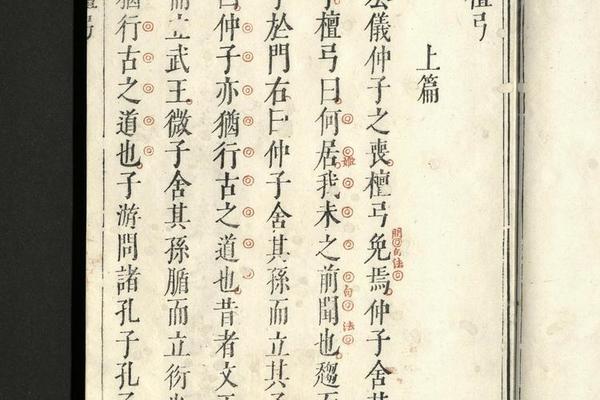 檀弓
上篇
公儀仲子之喪檀弓免焉仲子舍其
檀弓曰何居我未之前聞也趨而
於門右曰仲子舍其孫而立其子
曰仲子亦猶行古之道也昔者文王
而立武王微子舍其孫腯而立衍也
猶行古之道也子游問諸孔子孔子
檀弓
明句法
姬
句法